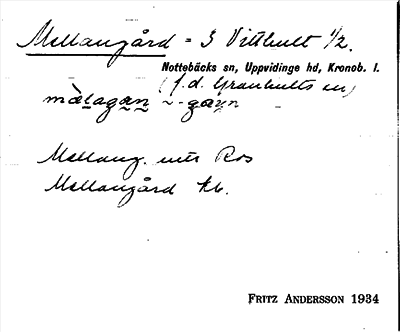 Mellangård = 3 Vitthult 1/2.
Nottebäcks sn, Uppvidinge hd, Kronob. l.
(f.d. Granhults sn)
mèlagan ~ -gaɳ
Mellang. Ros
Mellangård kb.
FRITZ ANDERSSON 1934